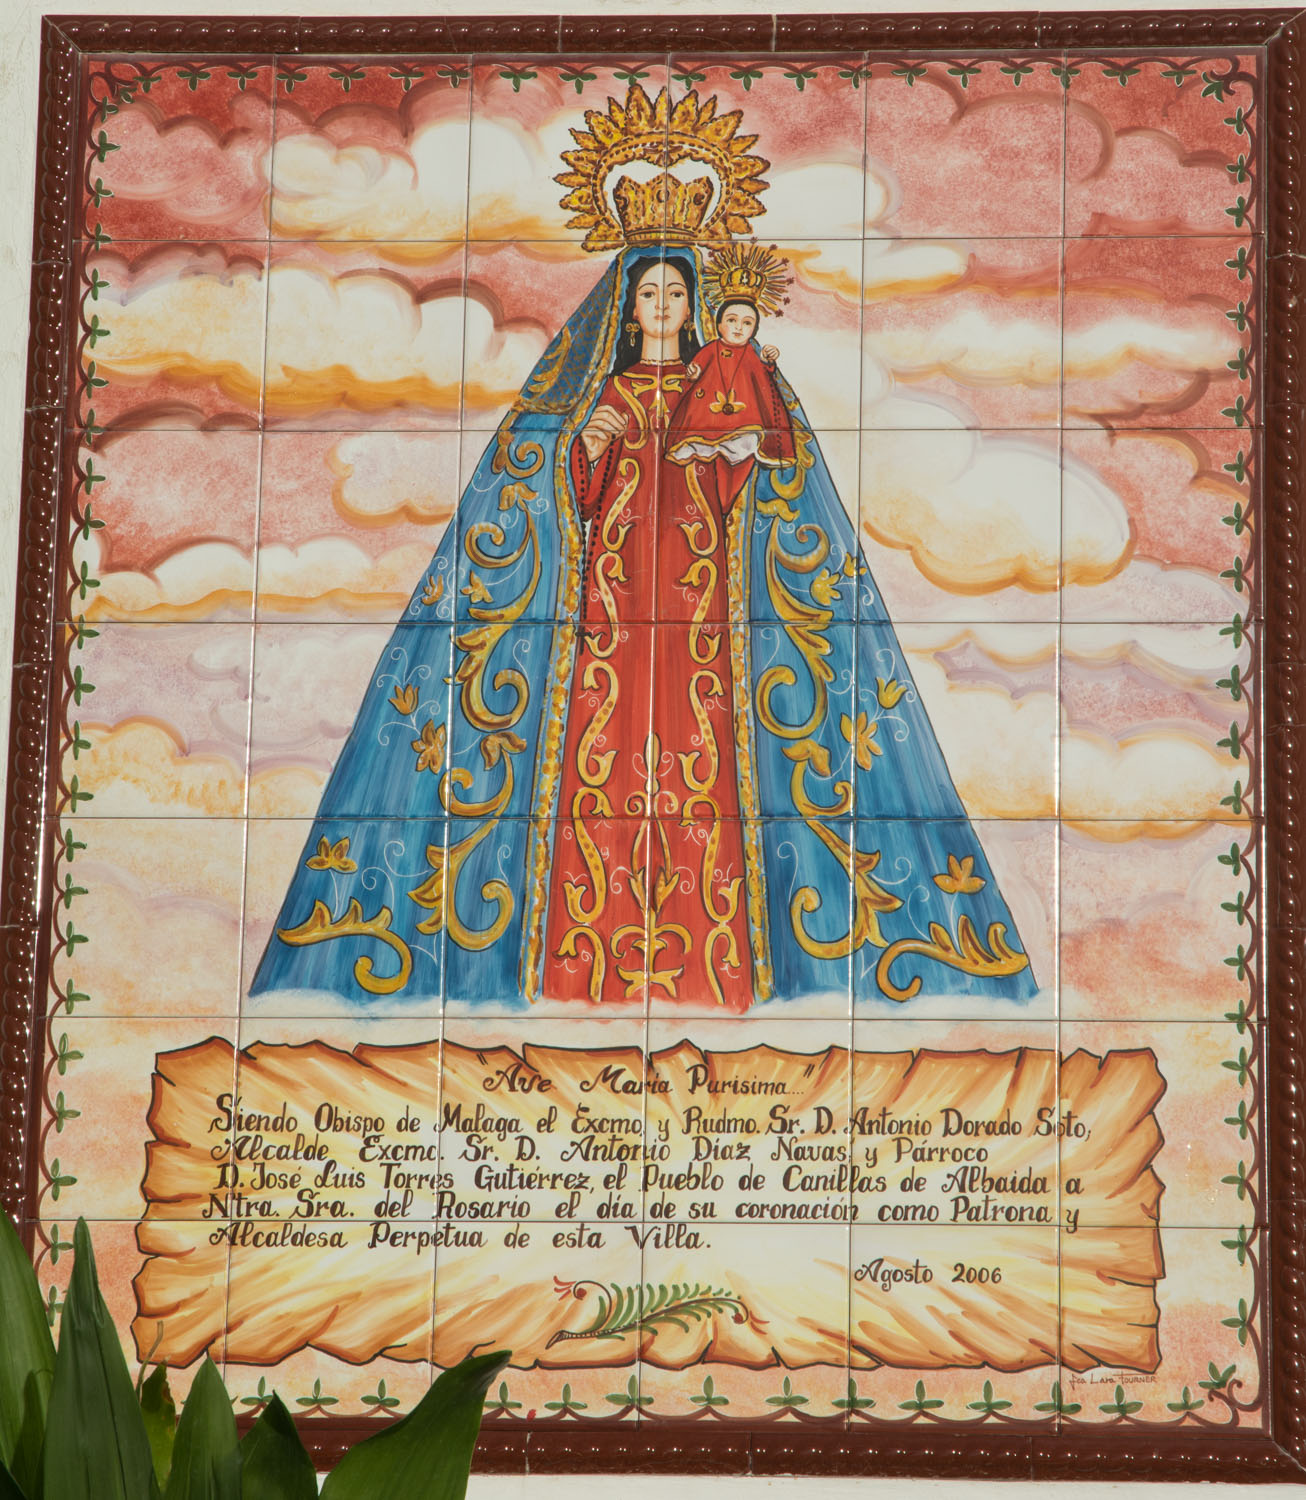 "Ave María Purisima..."
Siendo Obispo de Malaga el Excmo, y Rudmo. Sr. D. Antonio Dorado Soto,
Alcalde Excmo. Sr. D. Antonio Díaz Navas, y Párroco
D. José Luis Torres Gutiérrez, el Pueblo de Canillas de Albaida a
Ntra. Sra. del Rosario el día de su coronación como Patrona y
Alcaldesa Perpetua de esta Villa.
Agosto 2006
Fca Lara TOURNER